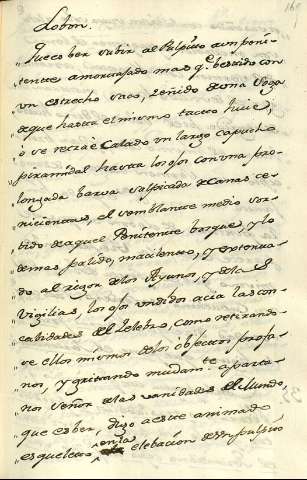 160
Lobon.
" Que es ber subir al Pulpito a un peni-
" tente amortajado mas q.e bestido con
" un estrecho saco, zeñido de una Soga
" que hasta el mismo tacto huie,
o se recrae Calado un largo capucho
" piramidal hasta los ojos con una pro-
" longada barva salpicada de canas ce-
" nicientas, el semblante medio sor-
" bido de aquel Penitente bosque, y lo
" demas palido, macilento, y extenua-
" do al rigor de los Ayunos, y de las
" Vigilias, los ojos undidos acia las con-
" cabidades del Zelebro, como retirando-
" se ellos mismos de los objectos profa-
" nos, y gritando mudam.te aparta-
" nos Señor de las vanidades del Mundo,
" que es ber, digo a este animado
" esqueleto en la elebacion de un pulpito